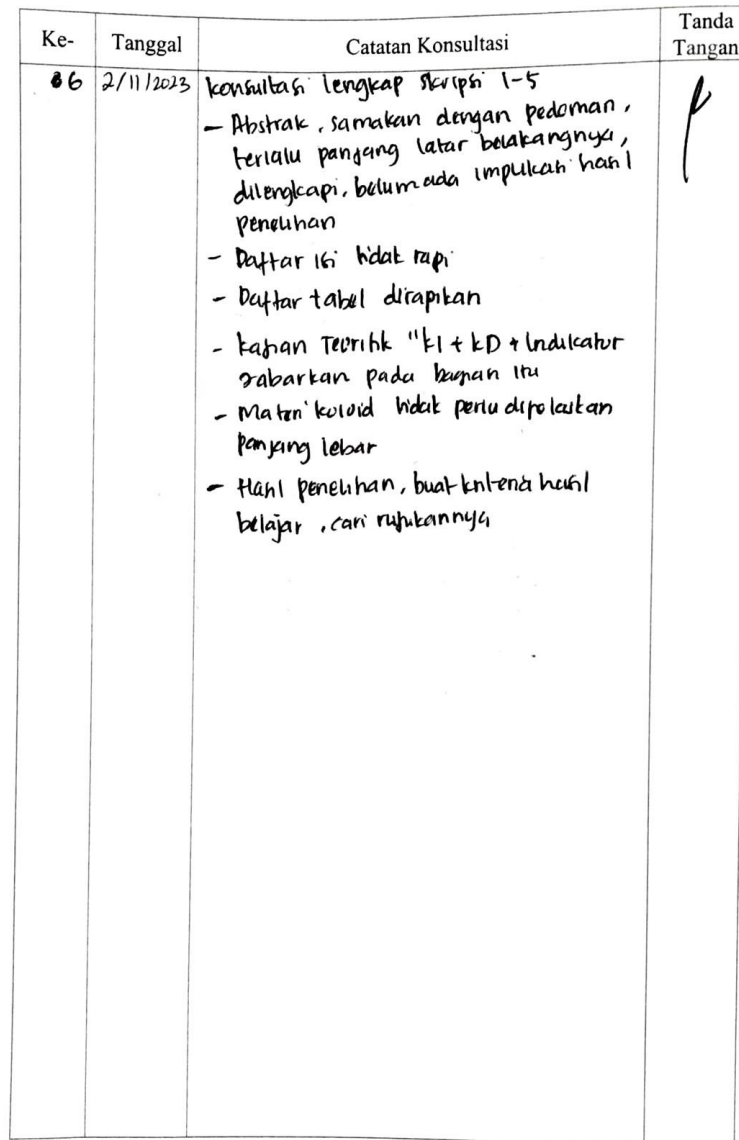 Ke-
Tanggal
Catatan Konsultasi
Tanda
Tangan
6
2/11/2023
konsultasi lengkap skripsi 1-5
- Abstrak, samakan dengan pedoman,
terlalu panjang latar belakangnya,
dilengkapi, belum ada impulkan hasil
penelitian
- Daftar isi tidak rapi
- Daftar tabel dirapikan
- kajian Teoritik "KI + KD + Indikator
jabarkan pada bagian itu
- Materi koloid tidak perlu dijelaskan
panjang lebar
- Hasil penelitian, buat kriteria hasil
belajar, cari rujukannya